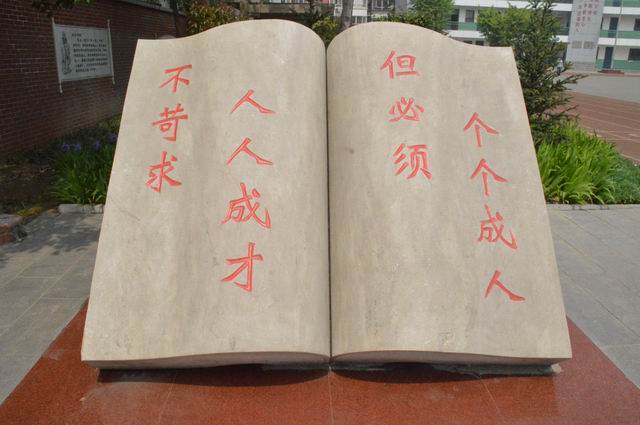 不苛求
人人成才
但必须
个个成人